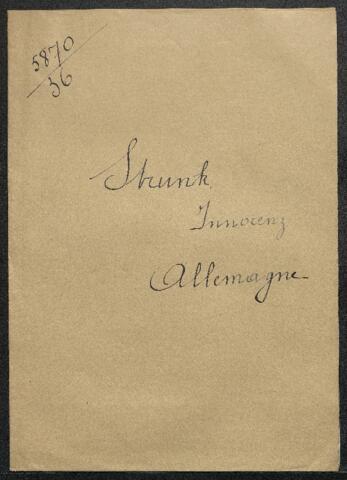 5870
56
Strunk
Innocenz
Allemagne